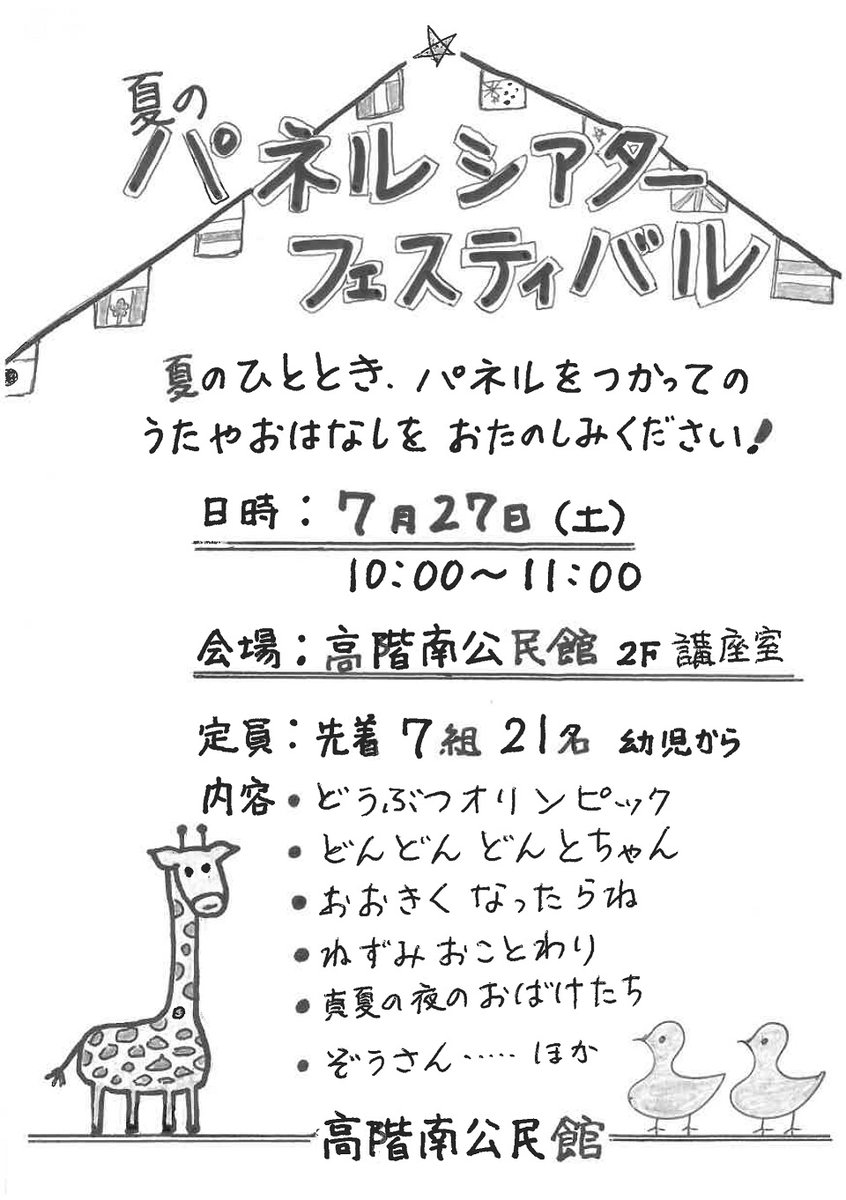 夏の
パネルシアター
フェスティバル
夏のひととき、パネルをつかっての
うたやおはなしを おたのしみください!
日時：7月27日（土）
10:00～11:00
会場：高階南公民館 2F 講座室
定員：先着 7組 21名 幼児から
内容・どうぶつオリンピック
・どんどん どんとちゃん
・おおきく なったらね
・ねずみ おことわり
・真夏の夜のおばけたち
・ぞうさん‥‥‥ほか
高階南公民館